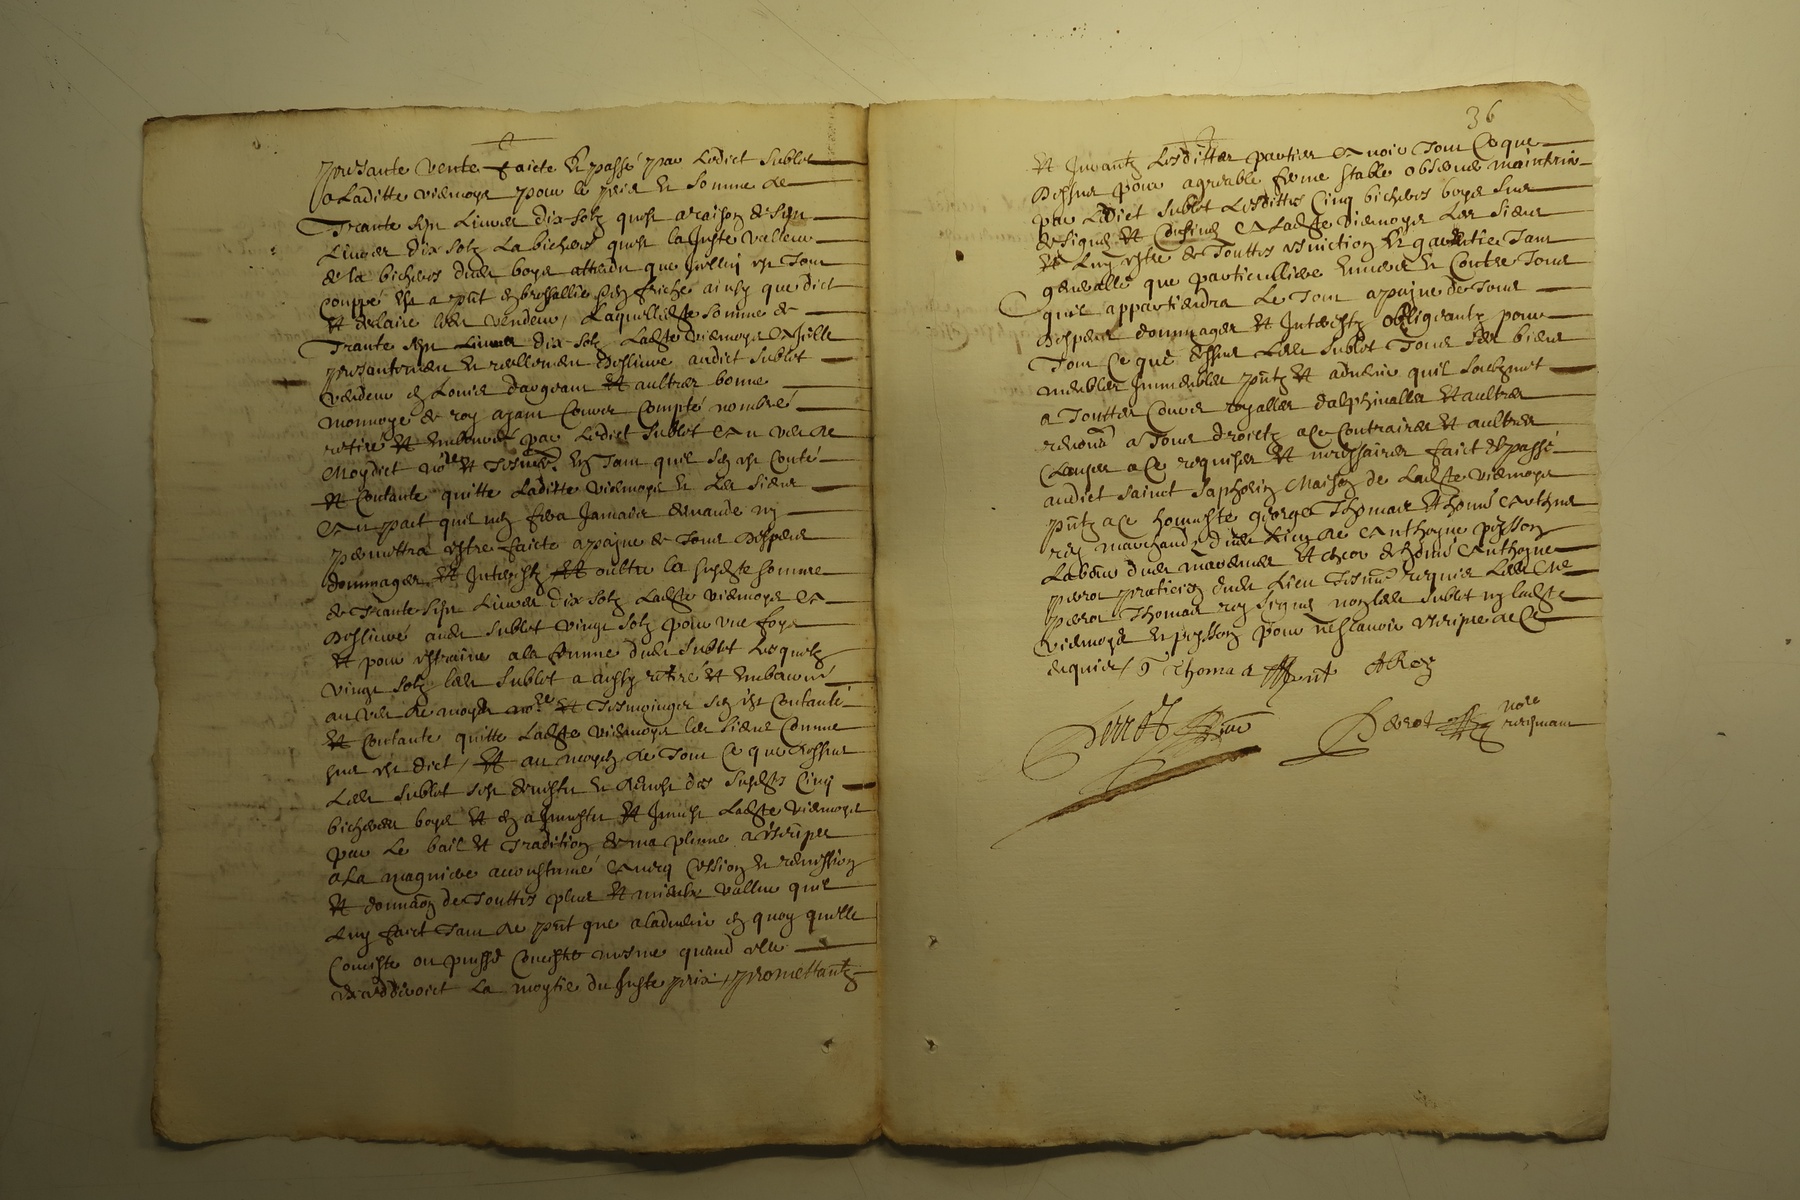 presante vente faicte et passé par ledict Sublet
a laditte viemoye pour le prix et somme de
Trante sept livres dix solz quest a raison de sept
livres dix solz la bicheree quest la juste valleur
de la bicheree dud boys attendu que jcelluy est tout
couppé et a pnt en brossallie en friche ainsy que dict
et desclaire led vendeur, laquelledte somme de
Trante sept livres dix solz ladte viemoye a jlle
presantement et reellement deslivre audict Sublet
vendeur en louis dargeant et aultres bonne
monnoye de roy ayant cours compté nombré
retiré et emboursé par ledict Sublet a veue de
moydict nore et tesmes en tant quil sen est conté
et contante quitte laditte viemoye et les siens
a pact quil nen fera jamais demande ny
permettra estre faicte a payne de tous despens
dommages et interestz et oultre la susdte somme
de Trante sept livres dix solz ladte viemoye a
deslivré aud Sublet vingt solz pour une foys
et pour estraine a la femme dud Sublet lesquelz
vingt solz led Sublet a aussy retiré et emboursé
au veu de moyd nore et tesmoingz sen est contanté
et contante quitte ladte viemoye les siens comme
sus est dict, et au moyen de tout ce que dessus
led Sublet sest devestu et desmis des susdts cinq
bicherees boys et en a jnvestu et jnmist ladte viemoye
par le bail et tradition de ma plume a escripre
a la magniere accoustumé avecq cession et remission
et donnaon de touttes plus et mieulx vallue quil
luy faict tant de pnt que a ladvenir en quoy quelle
conciste ou puisse concister mesme quand elle
excedderoict la moytie du juste prix, promettantz
36
et jurantz lesdittes parties avoir tout ce que
dessus pour agreable ferme stable observer maintenir
par ledict Sublet lesdittes cinq bicherees boys sus
designe et confine a ladte viemoye les siens
et luy estre de touttes esviction et garentie tant
generalle que particulliere envers et contre tous
quil appartiendra le tout a payne de tous
despens dommages et interestz obligeantz pour
tout ce que dessus led Sublet tous ses biens
meubles jmmeubles pntz et advenir quil soubzmet
a touttes cours royalles dalphinalles et aultres
renont a tous droictz a ce contraires et aultres
clauses a ce requises et necessaires faict et passé
audict sainct Saphorin maison de ladte viemoye
pntz a ce honneste george Thomas et honn Anthne
rey marchandz dud lieu de Anthoyne pesson
labour dud et honn Anthoyne
perrot praticien dud lieu tesms requis led
perrot Thomas rey signes non led Sublet ny ladte
viemoye et pesson pour ne scavoir escripre de ce
enquis, G Thomas pnt A Rey
Perrot
Perrot nore
recepvant